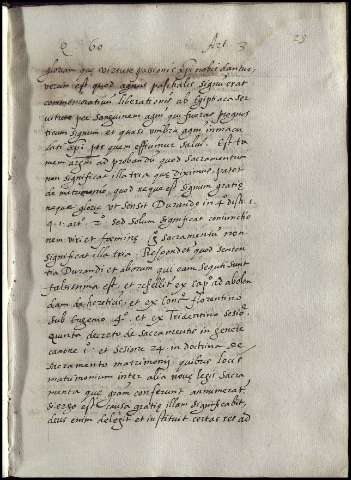 Q 60 Art 3 25
gloriam que virtute passionis Xpi nobis dantur,
verum est quod agnus paschalis signum erat
commemoratium liberationis ab Egiptiaca ser
vitute per sanguinem agni qui fuerat prognos
ticum signum et quasi umbra agni inmacu
lati Xpi per quem essemus salui. Est ta
men argm ad probandum quod sacramentum
non significat illa tria que diximus, patet
de matrimonio, quod neque est signum gratie
neque glorie ut sensit Durando in 4 dist.
q. 1. art. 2º sed solum significat coniunctio
nem viri et foemine sacramentum non
significat illa tria. Respondet quod senten
tia Durandi et aliorum qui eam sequti sunt
falsissima est, et refellit ex cap. ad abolen
dam de hereticis, et ex Conc. florentino
sub Eugenio 4º. et ex Tridentino sesio.
quinta decreto de sacramentis in genere
canone 1º. et sesione 24 in doctrina de
sacramento matrimonij quibus locis
matrimonium inter alia noue legis sacra
menta que gram conferunt annumerat.
si ergo est causa gratie illam significabit,
deus enim delegit et instituit certas res ad